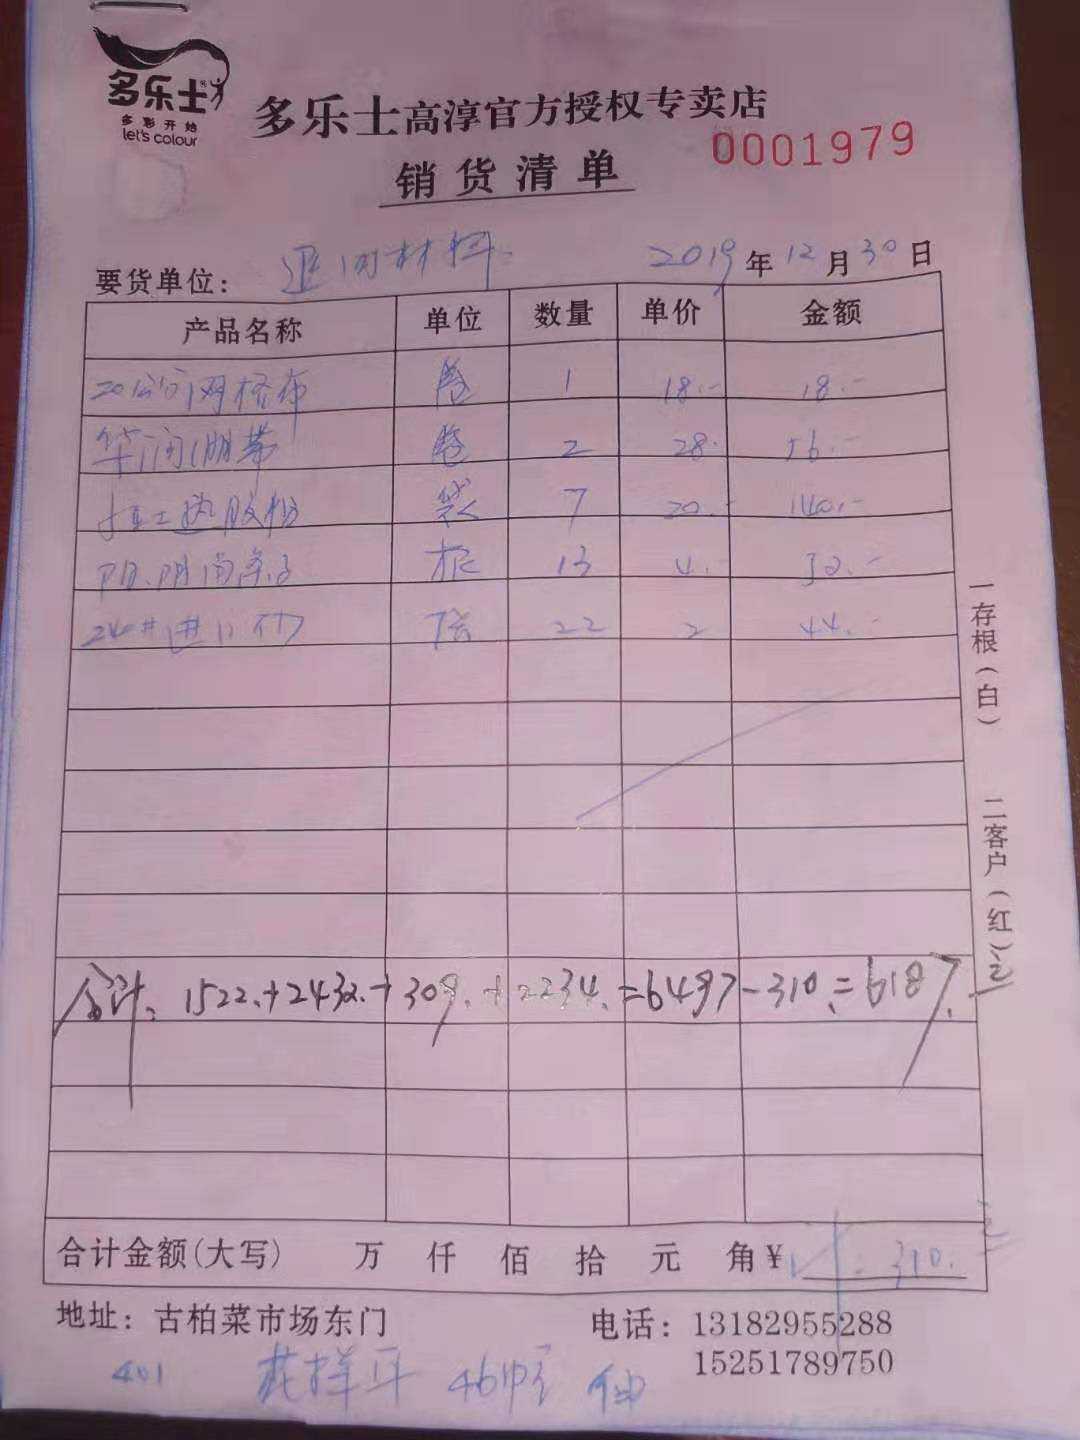 多乐士®
多彩开始
let's colour
多乐士高淳官方授权专卖店
0001979
销货清单
要货单位： 退回材料 2019年12月30日
产品名称 单位 数量 单价 金额
20公分网格布 卷 1 18.- 18.-
绷带 卷 2 28.- 56.-
胶粉 袋 7 20.- 140.-
阴角条子 根 13 4.- 52.-
240#进口砂 张 22 2 44.-
合计: 1522.+2432.+309.+2234.=6497-310.=6187.元
合计金额(大写) 万 仟 佰 拾 元 角 ¥ 310.元
地址：古柏菜市场东门 电话：13182955288
15251789750
401 46幢
一存根(白) 二客户(红)